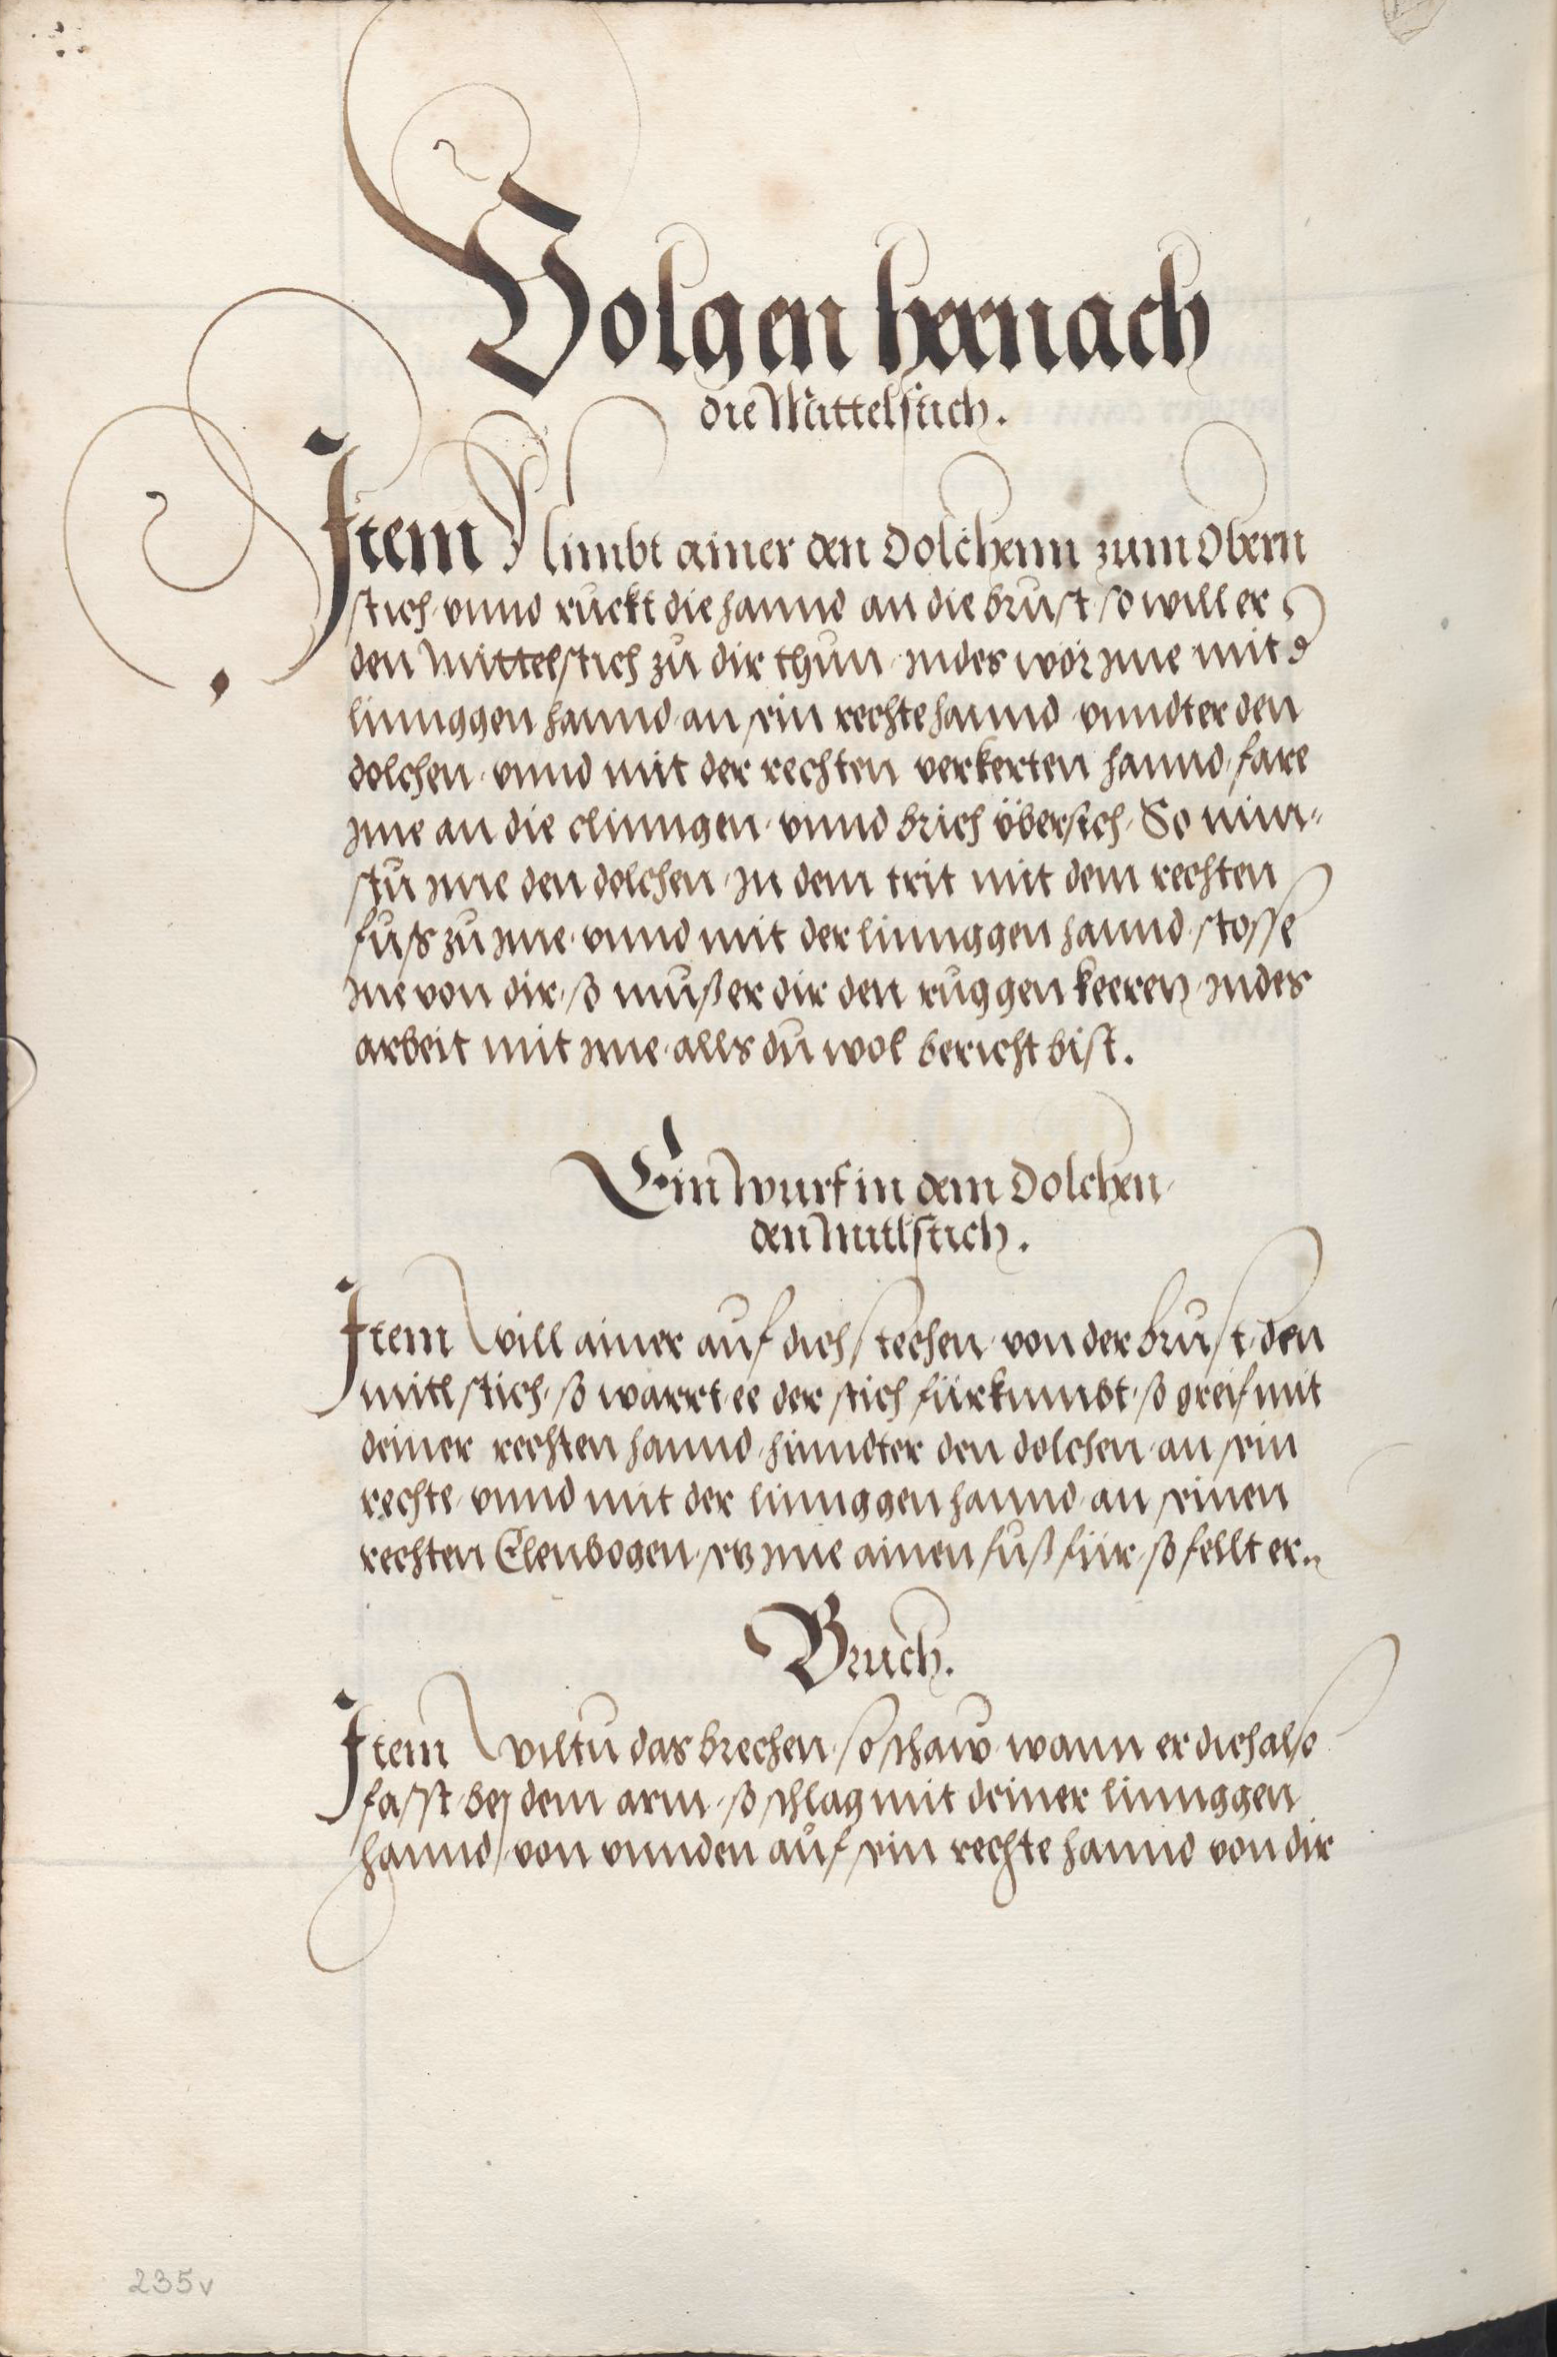 Volgen hernach
die Mittelstich.
Item Nimbt ainer den Dolchenn zum Obern
stich vnnd ruckt die hannd an die brust so will er
den Mittelstich zu dir thun Indes wör Ime mit d
linnggen hannd an sein rechte hannd vnndter den
dolchen vnnd mit der rechten verkerten hannd fare
Ime an die clinngen vnnd brich übersich So nim-
stu Ime den dolchen In dem trit mit dem rechten
fuß zu Ime vnnd mit der linnggen hannd stosse
Ine von dir so muß er dir den ruggen keeren Indes
arbeit mit Ime alls du wol bericht bist.
Ein wurf in dem Dolchen
den Mitlstich.
Item Will ainer auf dich stechen von der brust den
mitl stich so warrt ee der stich fürkumbt so greif mit
deiner rechten hannd hinndter den dolchen an sein
rechte vnnd mit der linnggen hannd an seinen
rechten Elenbogen setz Ime ainen fuß für so fellt er.
Bruch.
Item Wiltu das brechen so schaw wann er dich also
fasst bej dem arm so schlag mit deiner linnggen
hannd von vnnden auf sein rechte hannd von dir
235v